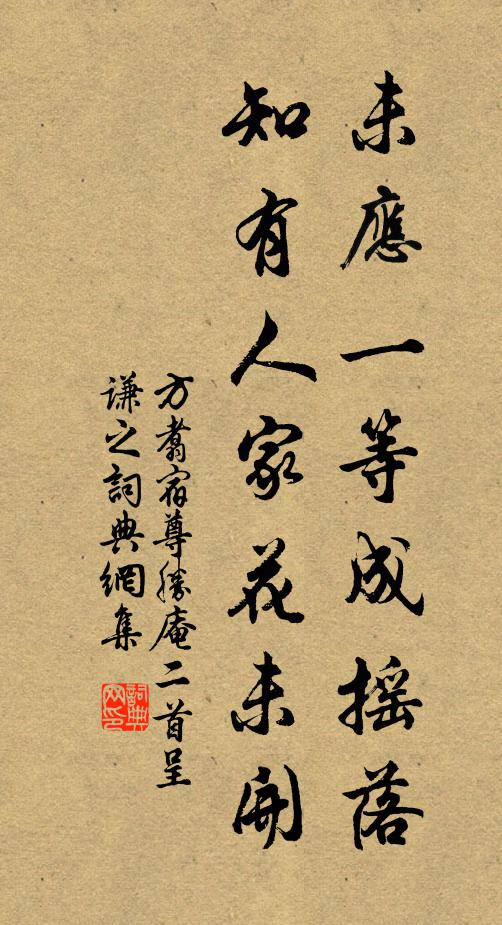 未應一等成摇落
知有人家花未開
方翥宿尊勝庵二首呈
謙之詞典網集
詞典网印